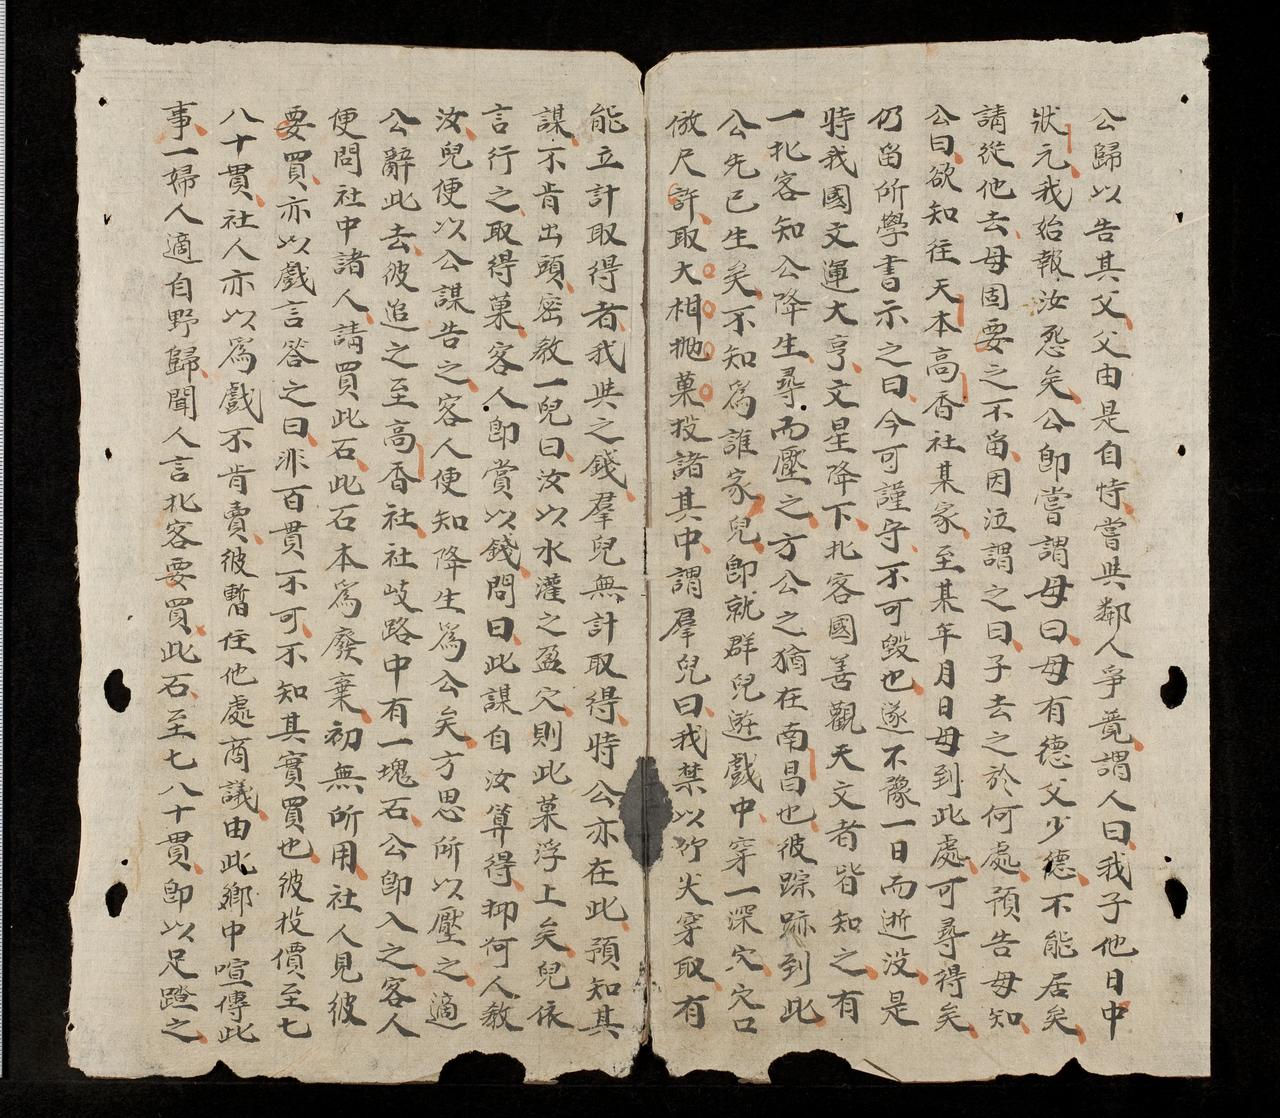 公歸以告其父父由是自恃嘗與鄰人爭竟謂人曰我子他日中
狀元我始報汝怨矣公卽嘗謂母曰母有德父少德不能居矣
請從他去母固要之不留因泣謂之曰子去之於何處預告母知
公曰欲知往天本高香社某家至某年月日母到此處可尋得矣
仍留所學書示之曰今可謹守不可毀也遂不豫一日而逝没是
時我國文運大亨文星降下北客國善觀天文者皆知之有
一北客知公降生尋而壓之方公之猶在南昌也彼踪跡到此
公先已生矣不知爲誰家兒卽就群兒遊戲中穿一深穴穴口
倣尺許取大相抛菓投諸其中謂羣兒曰我禁以竹火穿取有
能立計取得者我與之錢羣兒無計取得時公亦在此預知其
謀不肯出頭密教一兒曰汝以水灌之盈穴則此菓浮上矣兒依
言行之取得菓客人卽賞以錢問曰此謀自汝算得抑何人教
汝兒便以公謀告之客人便知降生爲公矣方思所以壓之適
公辭此去彼追之至高香社社岐路中有一塊石公卽入之客人
便問社中諸人請買此石此石本爲廢棄初無所用社人見彼
要買亦以戲言答之曰非百貫不可不知其實買也彼投價至七
八十貫社人亦以爲戲不肯賣彼暫住他處商議由此鄉中喧傳此
事一婦人適自野歸聞人言北客要買此石至七八十貫卽以足蹬之